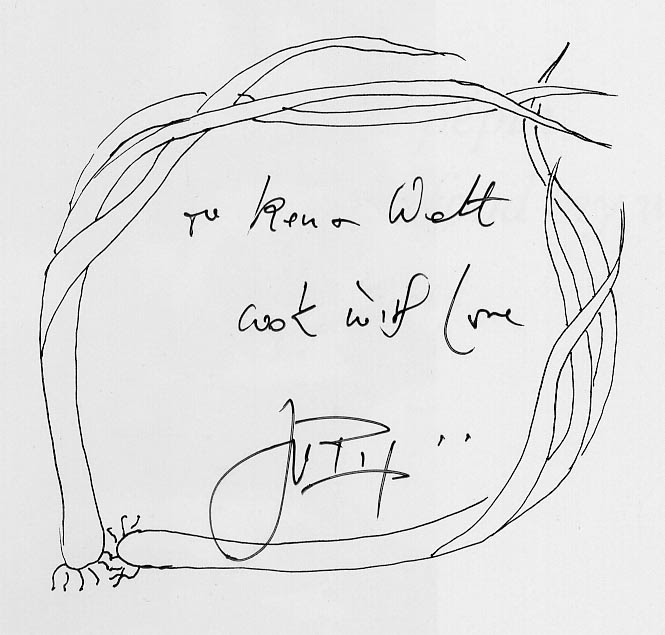 To Ken & Walt
Cook with Love